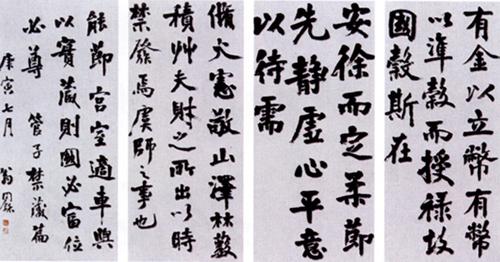 有金以立幣有幣
以準穀而授禄故
國穀斯在
安徐而定柔節
先静虛心平意
以待需
脩火憲敬山澤林藪
積艸夫財之所出以時
禁發焉虞師之事也
能節宮室適車輿
以實藏則國必富位
必尊 管子禁藏篇
庚寅七月 翁同龢